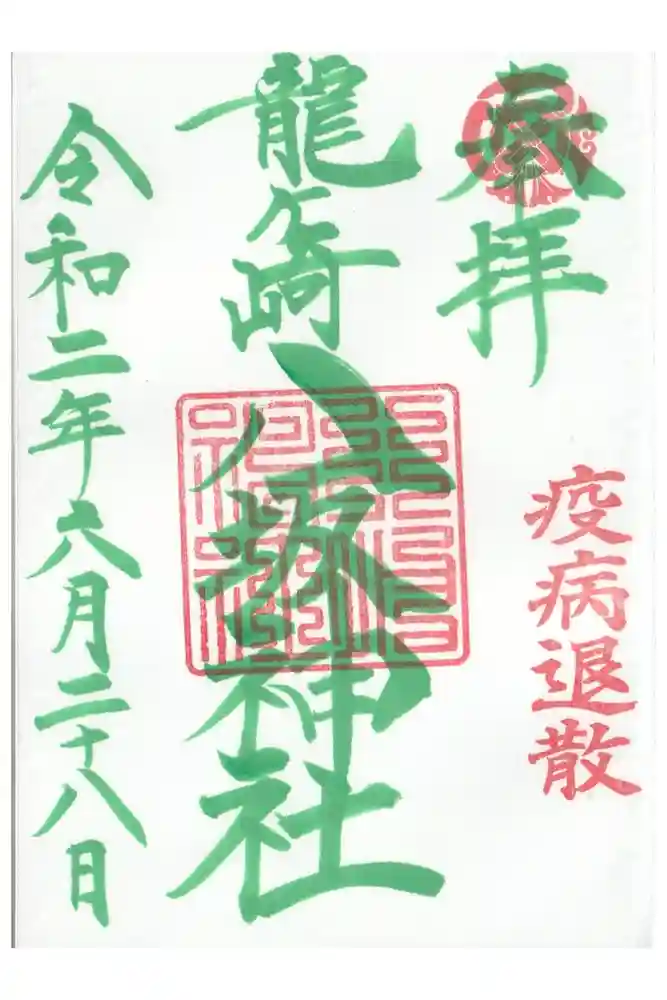 奉拝
疫病退散
龍ヶ崎
八坂神社
令和二年六月二十八日